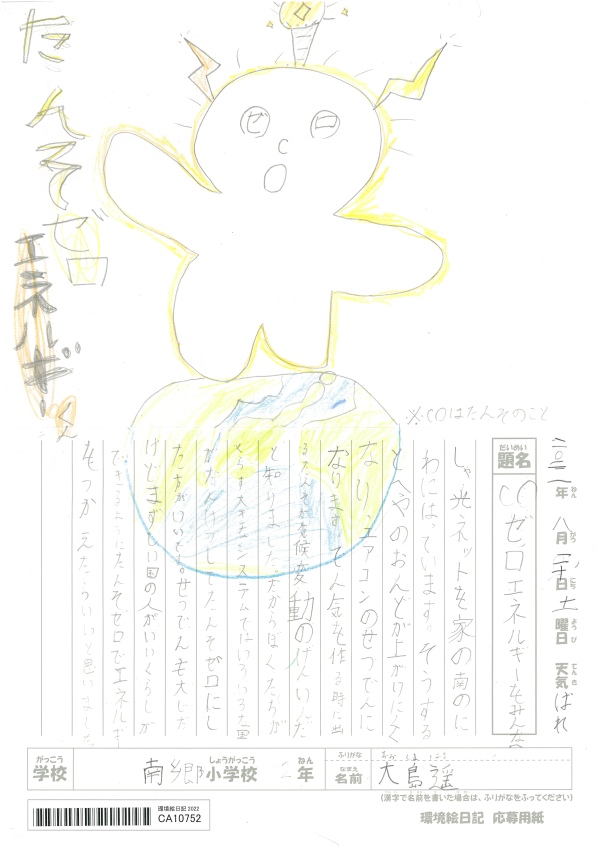 たんそゼロ
エネルギーくん
ゼロ
※COはたんそのこと
二〇二二年 八月 二十日 土曜日 天気 はれ
ねん がつ にち ようび てんき
だいめい
題名 COゼロエネルギーをみんなの
しゃ光ネットを家の南のに
わにはっています。そうする
とへやのおんどが上がりにくく
なり、エアコンのせつでんに
なります。で人気を作る時に出
るたんそが気候変動のげんいんだ
と知りました。だからぼくたちが
システムではいろいろな
たんそゼロにし
た方がいいです。せつでんも大じだ
けどまずしい国の人がいいくらしが
できるようにたんそゼロでエネルギー
をつかえたらいいと思いました。
がっこう しょうがっこう ねん ふりがな おおしま
学校 南郷小学校 2年 なまえ 名前 大島遥
(漢字で名前を書いた場合は、ふりがなをふってください)
環境絵日記 2022
CA10752
環境絵日記 応募用紙